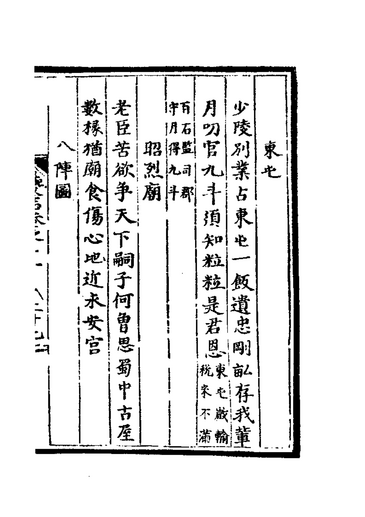 東屯
少陵別業占東屯一飯遺忠剛畆存我輩
月叨官九斗須知粒粒是君恩東屯歲輸稅米不滿
百石監司郡守月得九斗
昭烈廟
老臣苦欲爭天下嗣子何曽思蜀中古屋
數椽猶廟食傷心地近永安宮
八陣圖